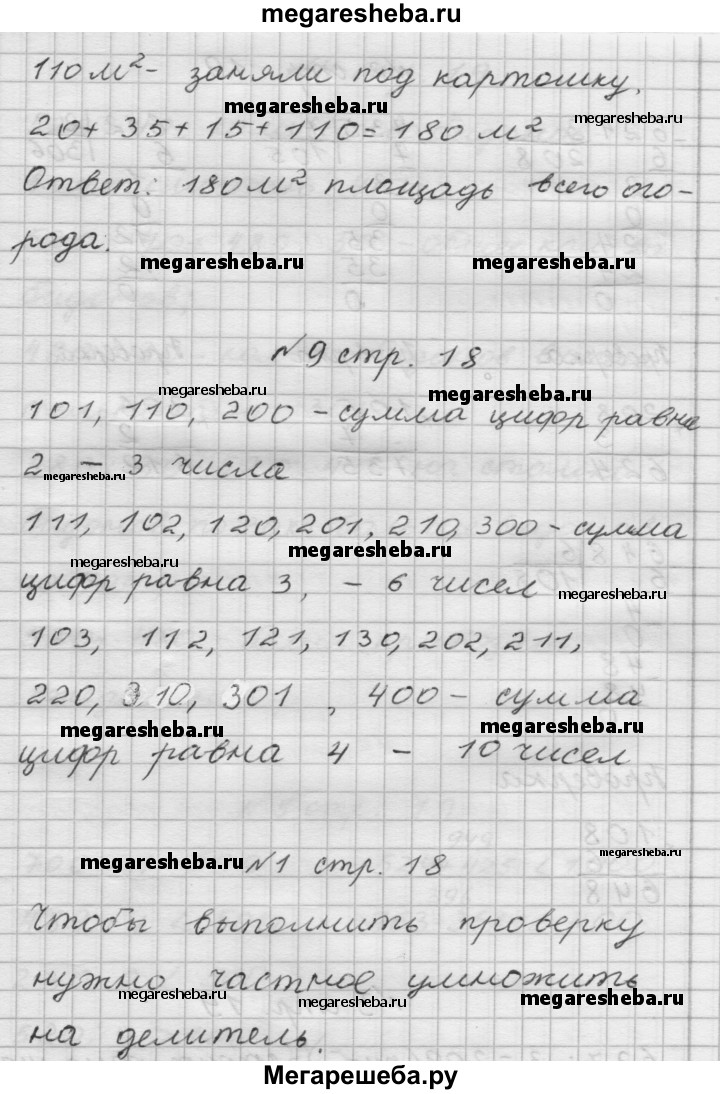 megaresheba.ru
110 м² - заняли под картошку.
megaresheba.ru megaresheba.ru
20 + 35 + 15 + 110 = 180 м²
Ответ: 180 м² площадь всего ого-
рода.
megaresheba.ru megaresheba.ru
№9 стр. 18
megaresheba.ru megaresheba.ru
101, 110, 200 - сумма цифр равна
2 - 3 числа
megaresheba.ru megaresheba.ru
111, 102, 120, 201, 210, 300 - сумма
megaresheba.ru megaresheba.ru
цифр равна 3, - 6 чисел
megaresheba.ru
103, 112, 121, 130, 202, 211,
220, 310, 301, 400 - сумма
megaresheba.ru megaresheba.ru
цифр равна 4 - 10 чисел
megaresheba.ru №1 стр. 18
megaresheba.ru
Чтобы выполнить проверку
нужно частное умножить
megaresheba.ru megaresheba.ru megaresheba.ru
на делитель.
Мегарешеба.ру